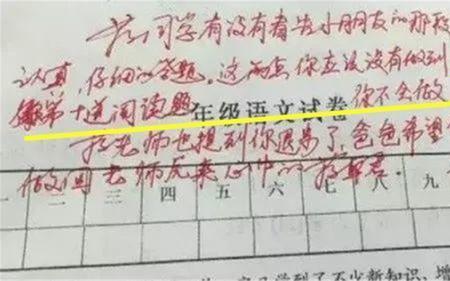 同学有没有看出小朋友的那种
认真,仔细的答题,这两点你应该没有做到
第十道阅读题 你不全做
年级语文试卷
老师也提到你退步了,爸爸希望
老师 心中的
二 三 四 五 六 七 八 九
学到了不少新知识,增